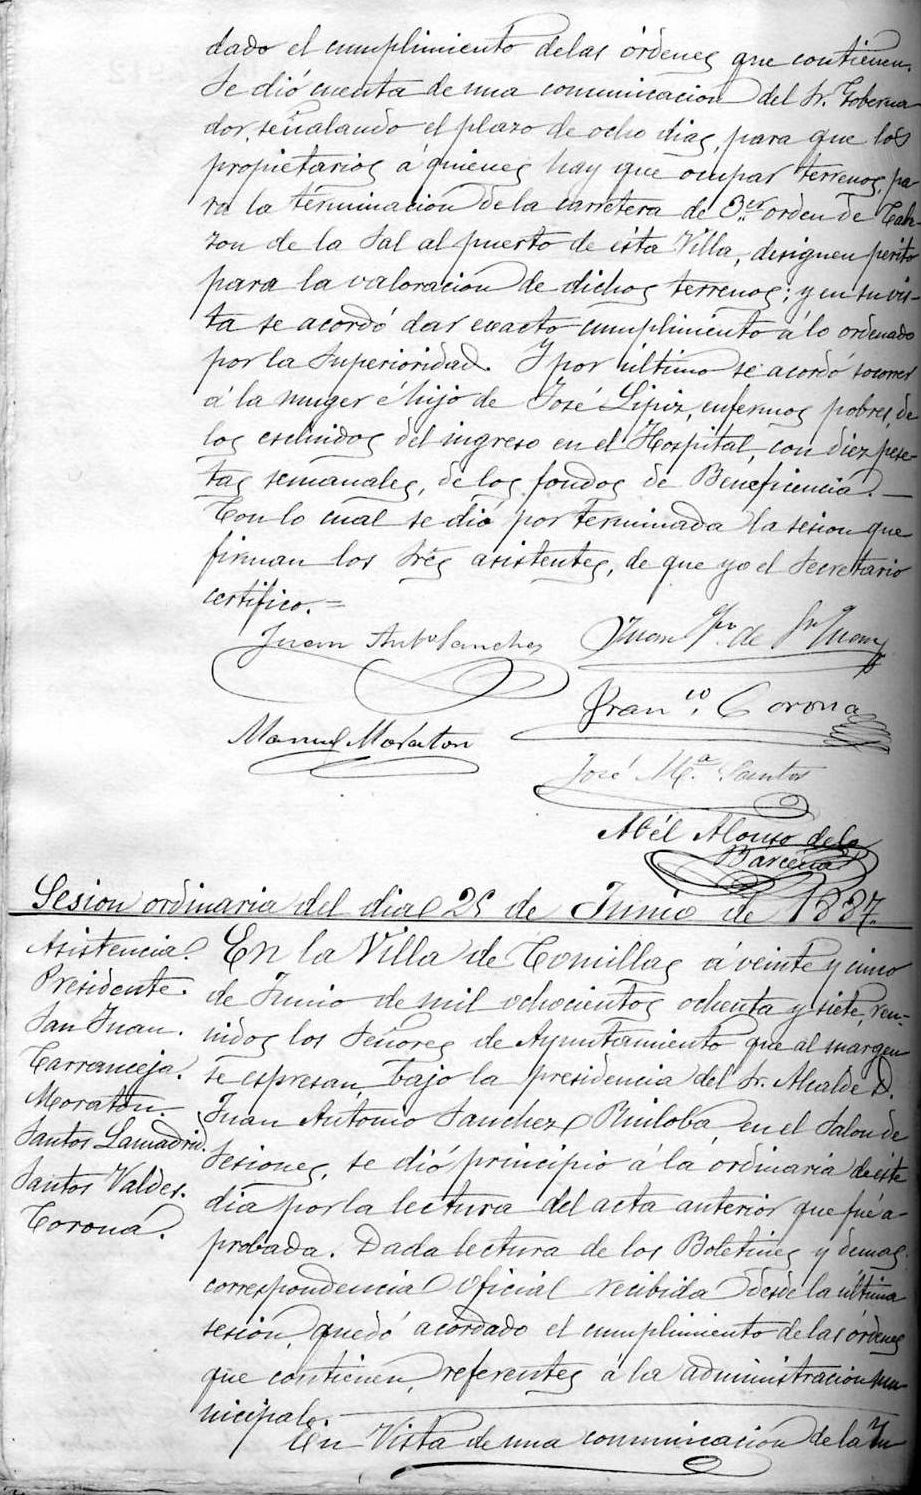 dado el cumplimiento delas órdenes que contienen.
Se dió cuenta de una comunicacion del Sr. Goberna
dor, señalando el plazo de ocho dias, para que los
propietarios á quienes hay que ocupar terrenos, pa
ra la terminacion dela carretera de 3.er orden de Cabe
zon de la Sal al puerto de esta Villa, designen perito
para la valoracion de dichos terrenos; y en su vis-
ta se acordó dar exacto cumplimiento á lo ordenado
por la Superioridad. Y por último se acordó socorrer
á la muger é hijo de José enfermos pobres, de
los escluidos del ingreso en el Hospital, con diez pese-
tas semanales, de los fondos de Beneficencia.
Con lo cual se dió por terminada la sesion que
firman los Sres asistentes, de que yo el Secretario
certifico.=
Juan Anto Sanchez
Juan de Sn Juan
Franco. Corona
Manuel Moraton
José M.a Santos
Abél Alonso dela
Bárcena
Sesion ordinaria del dia 25 de Junio de 1887.
Asistencia.
Presidente.
San Juan.
Carranceja.
Moraton.
Santos Lamadrid.
Santos Valdes.
Corona.
En la Villa de Comillas á veinte y cinco
de Junio de mil ochocientos ochenta y siete, reu-
nidos los Señores de Ayuntamiento que al margen
se espresan, bajo la presidencia del Sr. Alcalde D.
Juan Antonio Sanchez Ruiloba, en el Salon de
Sesiones, se dió principio á la ordinaria de este
dia por la lectura del acta anterior que fué a-
probada. Dada lectura de los Boletines y demas
correspondencia oficial recibida desde la última
sesion, quedó acordado el cumplimiento de las órdenes
que contienen, referentes á la administracion mu
nicipal.
En Vista de una comunicacion de la Yn